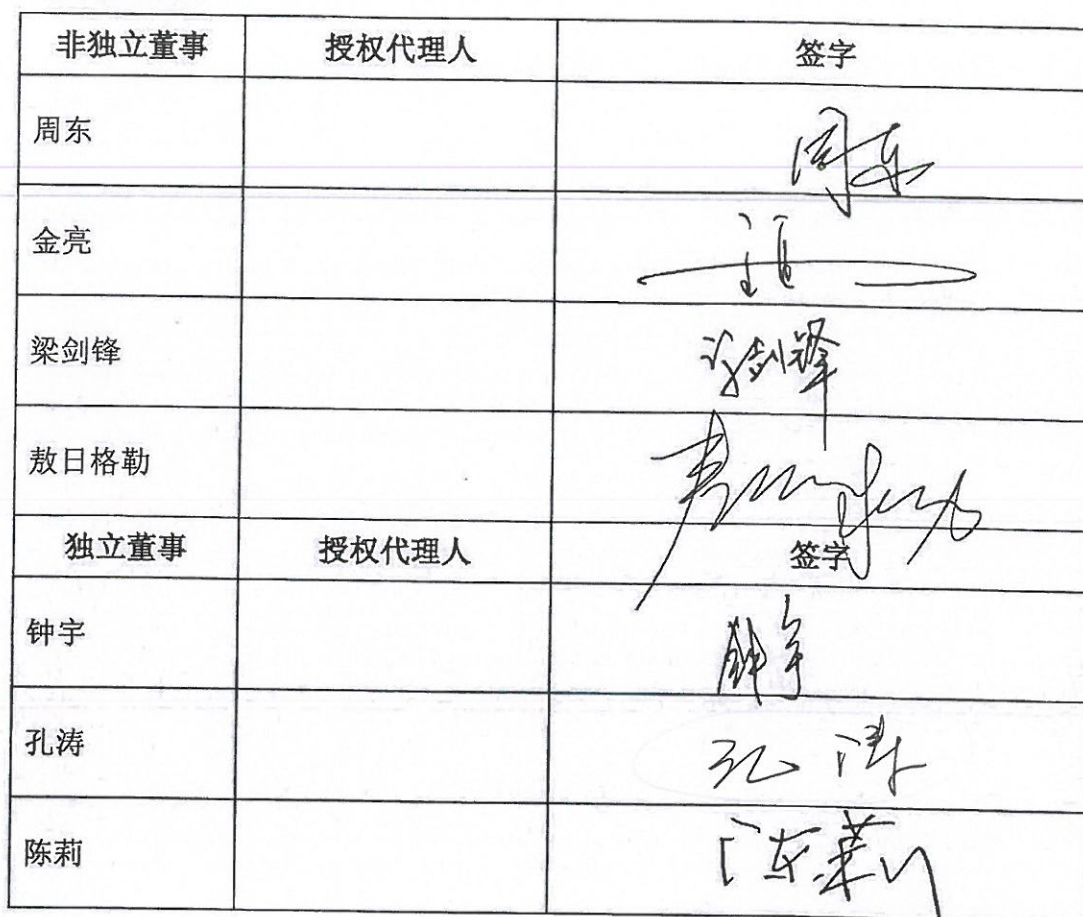 非独立董事 授权代理人 签字
周东 周东
金亮
梁剑锋 梁剑锋
敖日格勒
独立董事 授权代理人 签字
钟宇 钟宇
孔涛 孔涛
陈莉 陈莉